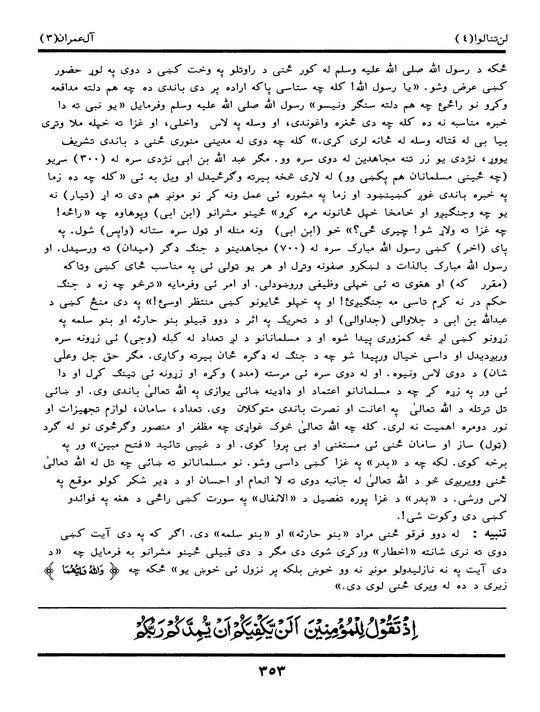 لن تنالوا (٤) آل عمران (٣)
ځکه د رسول الله صلی الله علیه وسلم له کور ځنی د راوتلو په وخت کښی د دوی په لوړ حضور
کښی عرض وشو. «یا رسول الله! کله چه ستاسی پاکه اراده پر دی باندی ده چه هم دلته مدافعه
وکړو نو راځئ چه هم دلته سنگر ونیسو» رسول الله صلی الله علیه وسلم وفرمایل «یو نبی ته دا
خبره مناسبه نه ده کله چه دی ځغره واغوندی، او وسله په لاس واخلی، او غزا ته خپله ملا وتړی
بیا بی له قتاله وسله له ځانه لری کړی.» کله چه دوی له مدینی منوری ځنی د باندی تشریف
یووړ، نژدی یو زر تنه مجاهدین له دوی سره وو. مگر عبد الله بن ابی نژدی سره له (۳۰۰) سړیو
(چه ځینی مسلمانان هم پکښی وو) له لاری څخه بیرته وگرځیدل او ویل به ئی «کله چه ده زما
په خبره باندی غوږ کښینښود او زما په مشوره ئی عمل ونه کړ نو مونږ هم دی ته اړ (تیار) نه
یو چه وجنگیږو او خامخا خپل ځانونه مړه کړو» ځینو مشرانو (ابن ابی) وپوهاوه چه «راځه!
چه غزا ته ولاړ شو! چیری ځی؟» خو (ابن ابی) ونه منله او تول سره ستانه (واپس) شول. په
پای (اخر) کښی رسول الله مبارک سره له (۷۰۰) مجاهدینو د جنگ ډگر (میدان) ته ورسیدل. او
رسول الله مبارک بالذات د لښکرو صفونه وتړل او هر یو تولی ئی په مناسب ځای کښی وتاکه
(مقرر که) او هغوی ته ئی خپلی وظیفی وروښودلی. او امر ئی وفرمایه «ترڅو چه زه د جنگ
حکم در نه کړم تاسی مه جنگیږئ! او په خپلو ځایونو کښی منتظر اوسئ!» په دی منځ کښی د
عبدالله بن ابی د جلاوالی (جداوالی) او د تحریک په اثر د دوو قبیلو بنو حارثه او بنو سلمه په
زړونو کښی لږ څه کمزوری پیدا شوه او د مسلمانانو د لږ تعداد له کبله (وجی) ئی زړونه سره
وریږدیدل او داسی خیال ورپیدا شو چه د جنگ له ډگره ځان بیرته وکاږی. مگر حق جل وعلی
شان) د دوی لاس ونیوه. او له دوی سره ئی مرسته (مدد) وکړه او زړونه ئی تینگ کړل او دا
ئی ور په زړه کړ چه د مسلمانانو اعتماد او ډاډینه ښائی یوازی په الله تعالیٰ باندی وی. او ښائی
تل ترتله د الله تعالیٰ په اعانت او نصرت باندی متوکلان وی. تعداد، سامان، لوازم تجهیزات او
نور دومره اهمیت نه لری. کله چه الله تعالیٰ څوک غواړی چه مظفر او منصور وگرځوی نو له گرد
(ټول) ساز او سامان ځنی ئی مستغنی او بی پروا کوی. او د غیبی تائید «فتح مبین» ور په
برخه کوی. لکه چه د «بدر» په غزا کښی داسی وشو. نو مسلمانانو ته ښائی چه تل له الله تعالیٰ
ځنی وویریږی څو د الله تعالیٰ له جانبه دوی ته لا انعام او احسان او د ډیر شکر کولو موقع په
لاس ورشی. د «بدر» د غزا پوره تفصیل د «الانفال» په سورت کښی راځی د هغه په فوائدو
کښی دی وکوت شی!.
تنبیه : له دوو فرقو ځنی مراد «بنو حارثه» او «بنو سلمه» دی. اگر که په دی آیت کښی
دوی ته نری شانته «اخطار» ورکړی شوی دی مگر د دی قبیلی ځینو مشرانو به فرمایل چه «د
دی آیت په نه نازلیدلو مونږ نه وو خوښ بلکه پر نزول ئی خوښ یو» ځکه چه ﴿ وَاللهُ وَلِيُّهُمَا ﴾
زیری د ده له ویری ځنی لوی دی.»
اِذْ تَقُوْلُ لِلْمُؤْمِنِيْنَ اَلَنْ يَّكْفِيَكُمْ اَنْ يُّمِدَّكُمْ رَبُّكُمْ
۳۵۳